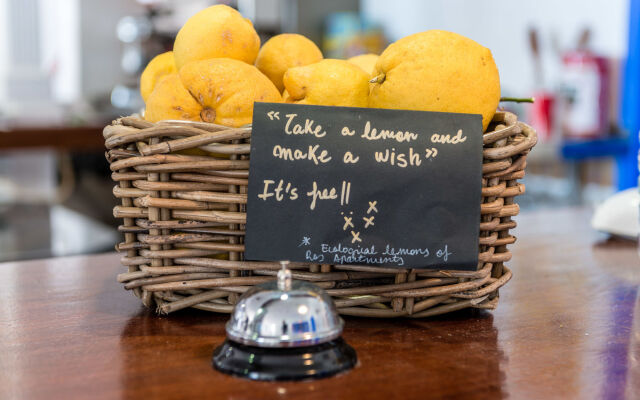 "Take a lemon and
make a wish"
It's free!!
x x
x
* Ecological lemons of
Ras Apartments